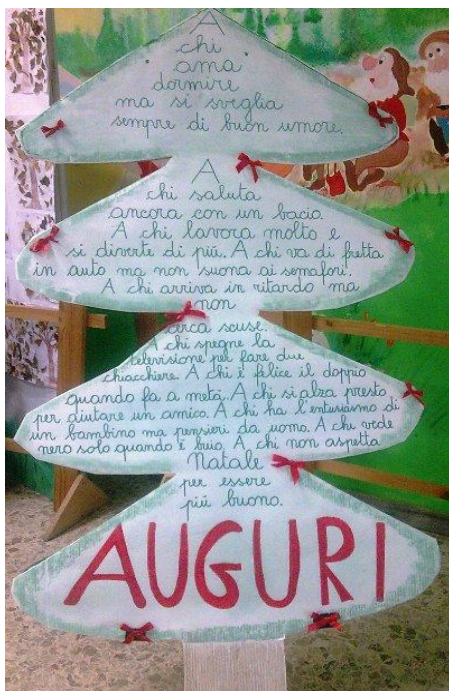 A
chi
ama
dormire
ma si sveglia
sempre di buon umore.
A
chi saluta
ancora con un bacio.
A chi lavora molto e
si diverte di più. A chi va di fretta
in auto ma non suona ai semafori.
A chi arriva in ritardo ma
non
cerca scuse.
A chi spegne la
televisione per fare due
chiacchiere. A chi è felice il doppio
quando fa a metà. A chi si alza presto
per aiutare un amico. A chi ha l'entusiasmo di
un bambino ma pensieri da uomo. A chi vede
nero solo quando è buio. A chi non aspetta
Natale
per essere
più buono.
AUGURI